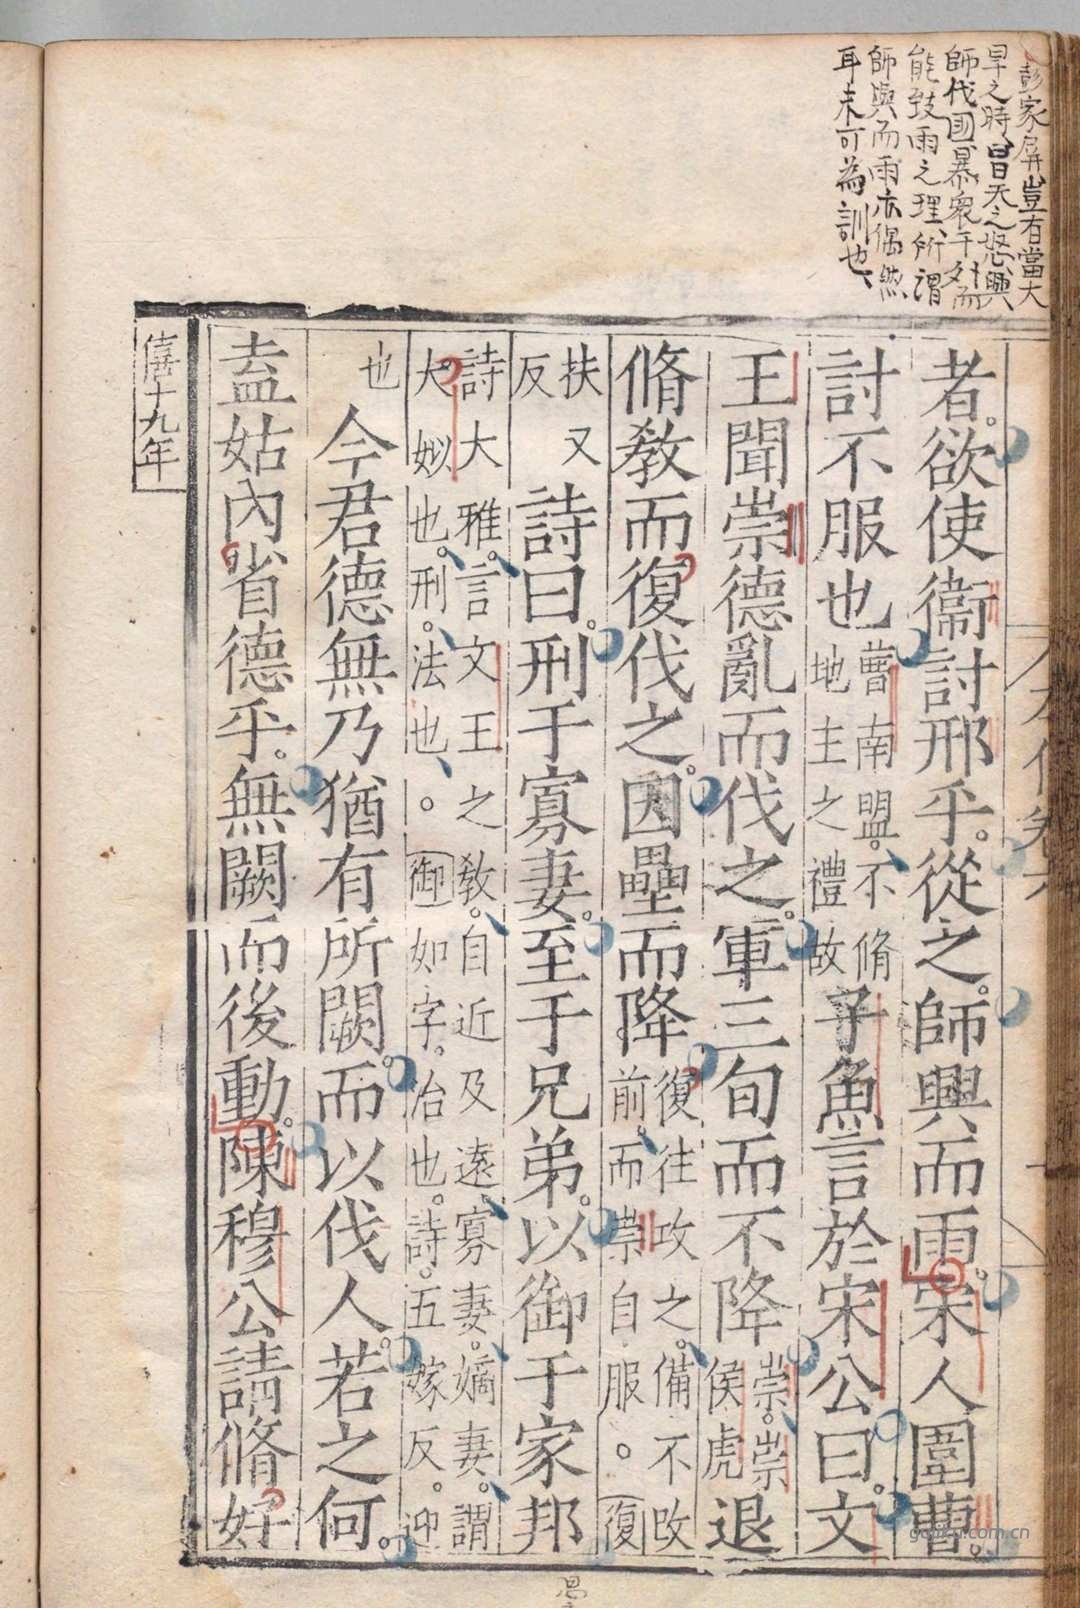 彭家屏豈有當大
旱之時
曾曰天之怒興
師伐國暴衆于外而
能致雨之理所謂
師興而雨亦偶然
耳未可為訓也
者欲使衞討邢乎從之師興而雨宋人圍曹
討不服也曹南盟不脩地主之禮故子魚言於宋公曰文
王聞崇德亂而伐之軍三旬而不降崇崇侯虎退
脩敎而復伐之因壘而降復往攻之備不改前而崇自服。復
扶又反詩曰刑于寡妻至于兄弟以御于家邦
詩大雅言文王之敎自近及遠寡妻嫡妻謂大姒也刑法也。御如字治也詩五嫁反迎
也今君德無乃猶有所闕而以伐人若之何
盍姑內省德乎無闕而後動陳穆公請脩好
僖十九年
gujiku.com.cn